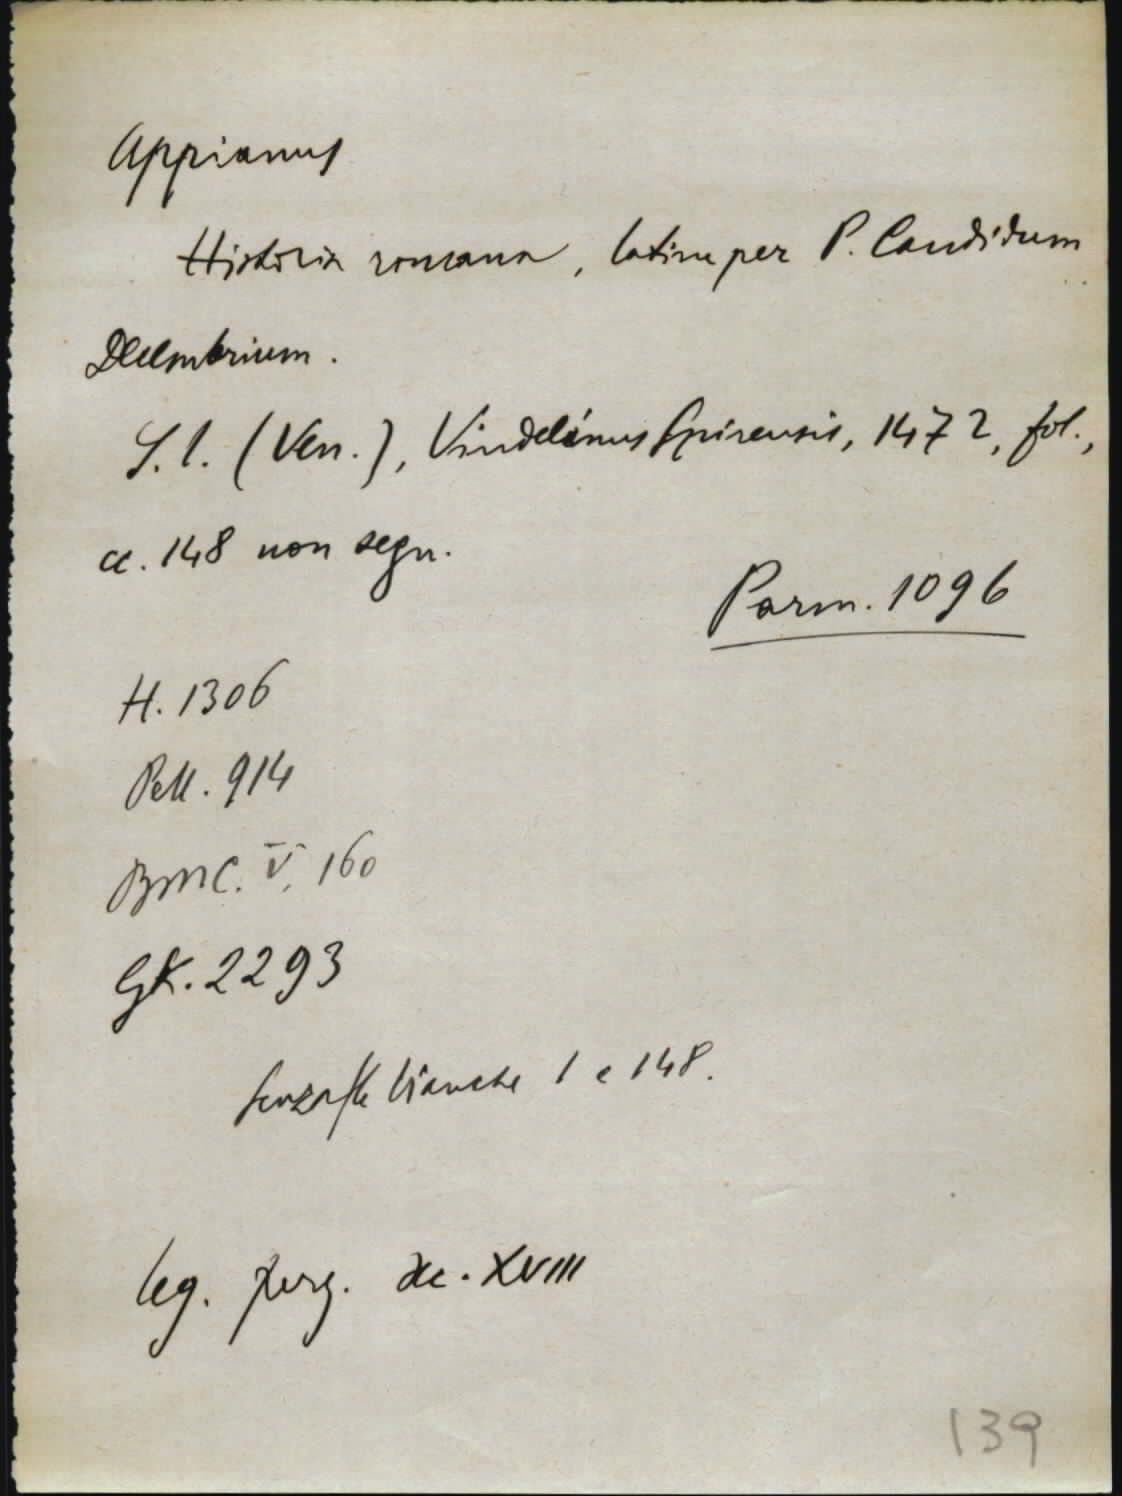 Appianus
Historia romana, latine per P. Candidum
Decembrium.
S.l. (Ven.), Vindelinus Spirensis, 1472, fol.,
cc. 148 non segn.
Parm. 1096
H. 1306
Pell. 914
BMC. V, 160
GK. 2293
senza le bianche 1 e 148.
leg. perg. sec. XVIII
139